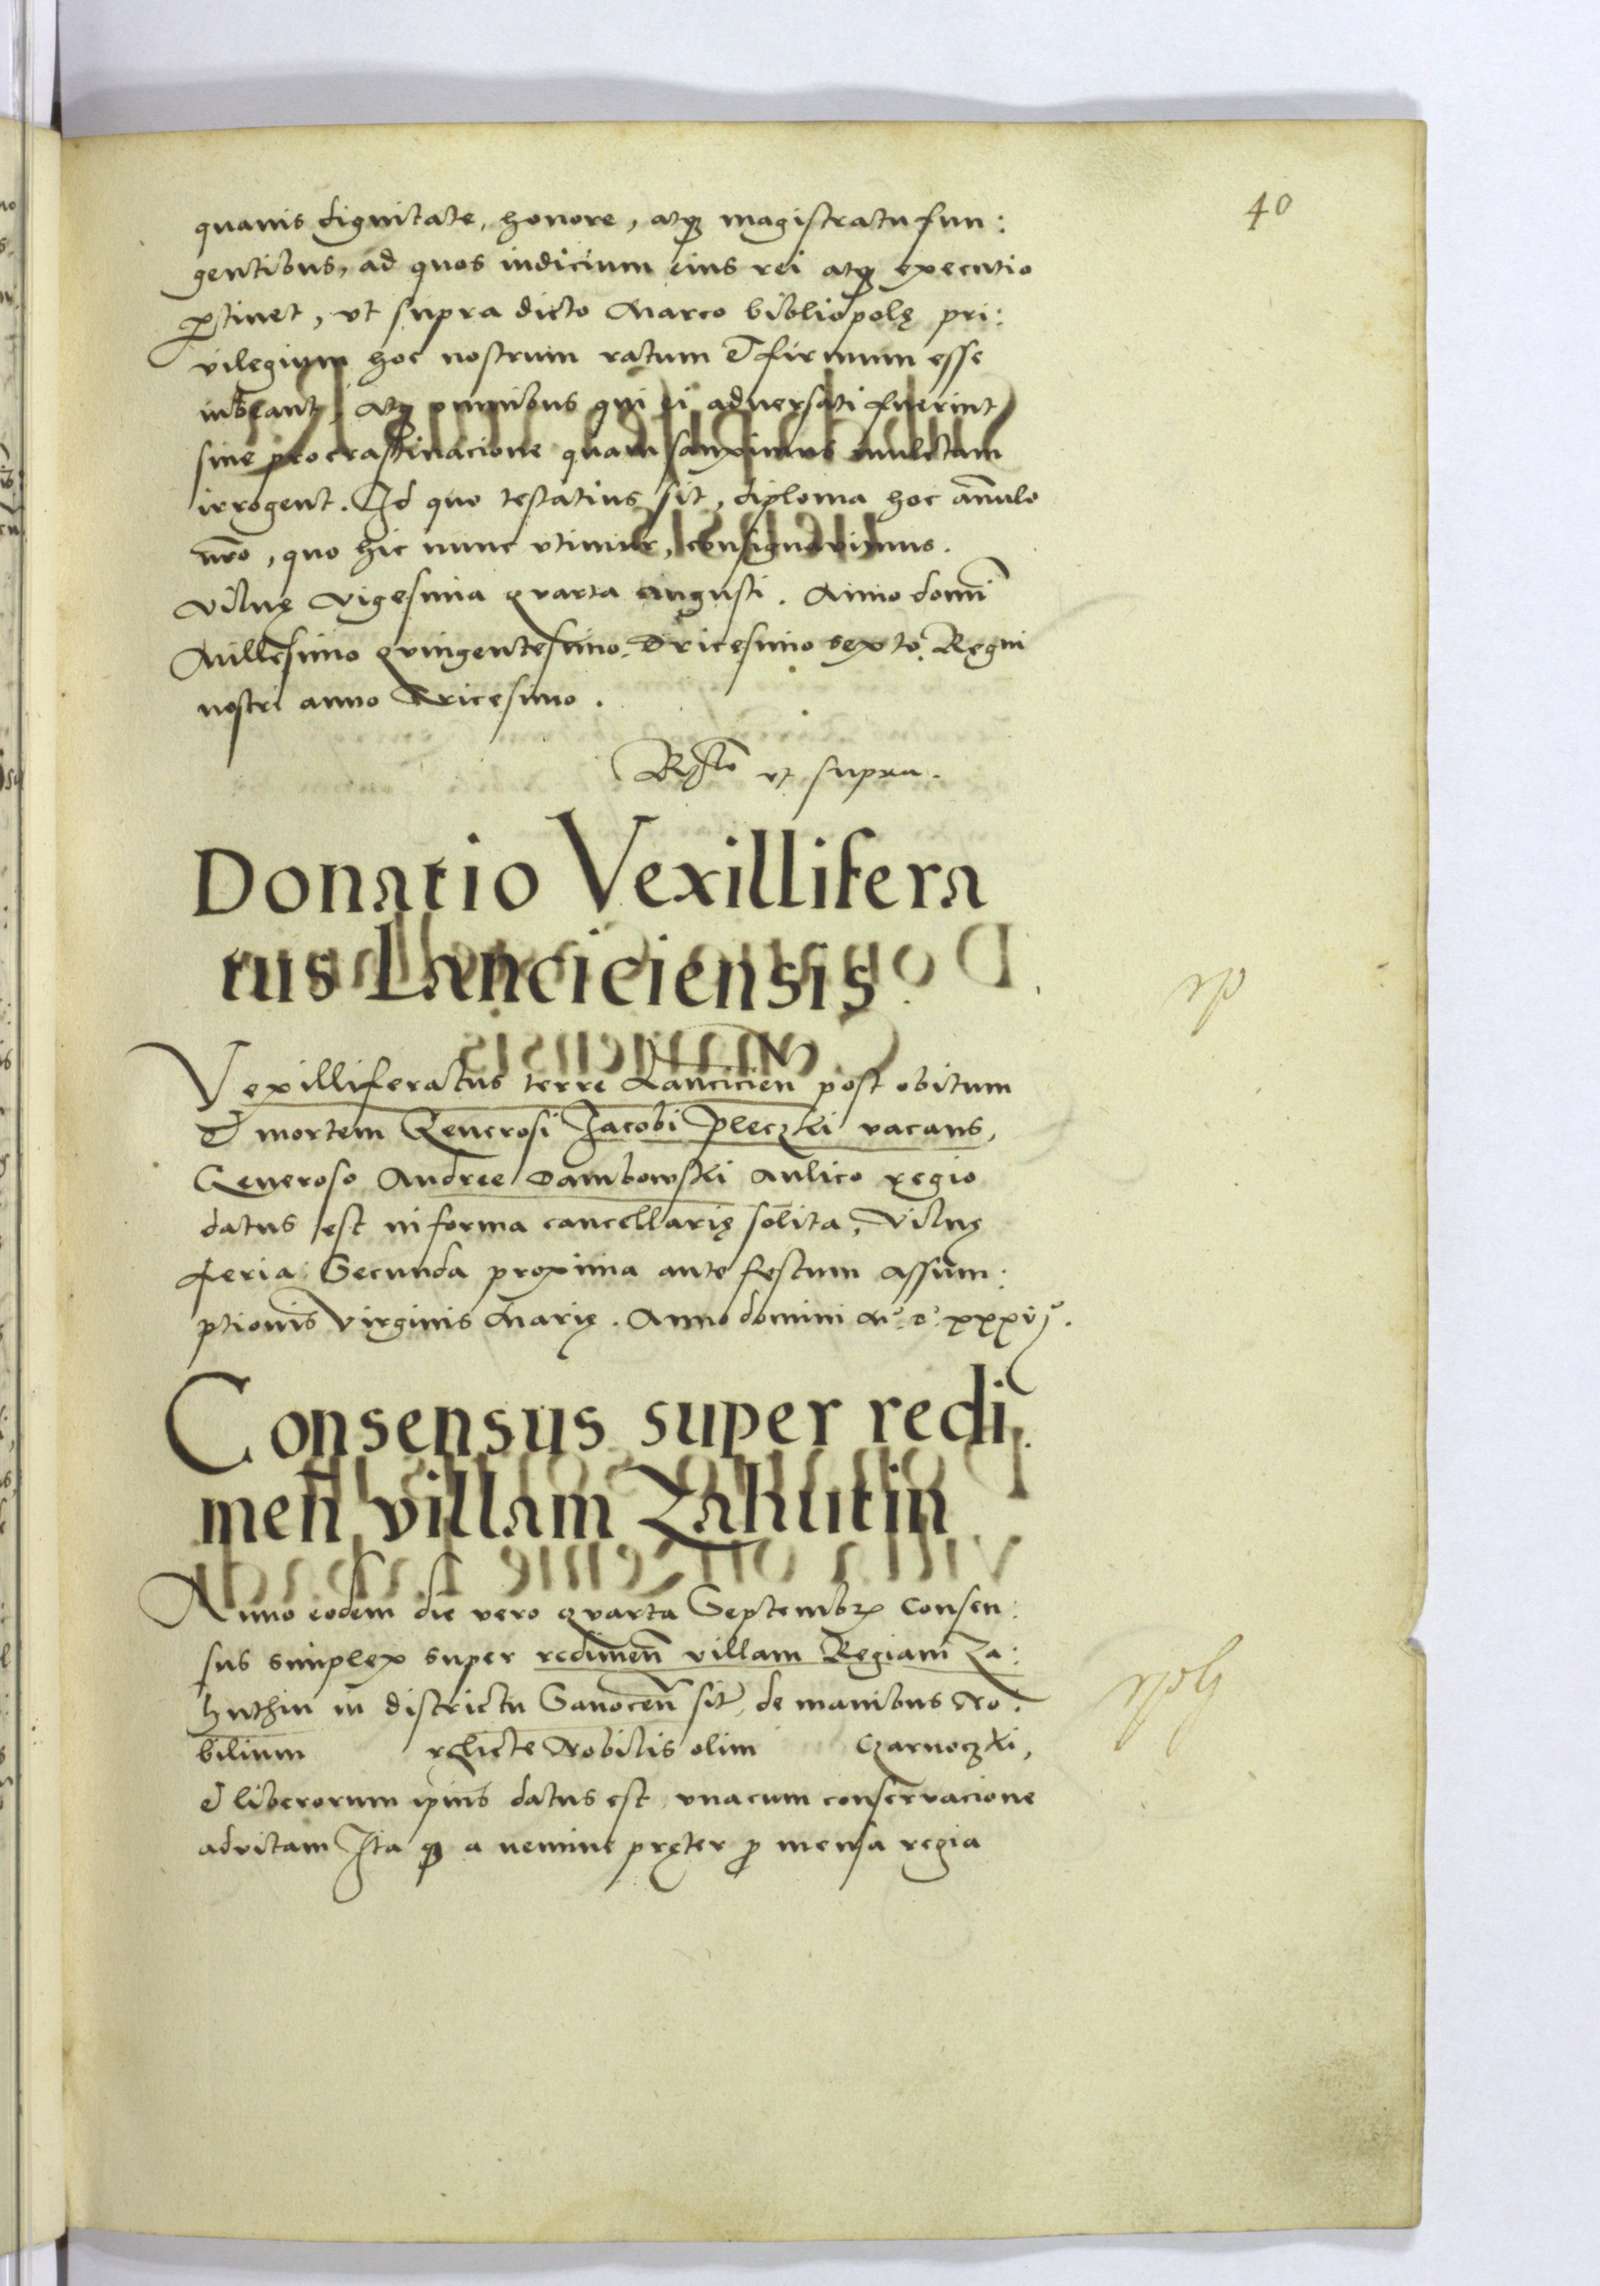 40
quavis dignitate, honore, atq; magistratu fun:
gentibus, ad quos iudicium eius rei atq; executio
ptinet, vt supra dicto Marco bibliopolę pri:
vilegium hoc nostrum ratum & firmum esse
iubeant, atq; omnibus qui ei adversati fuerint
sine procrastinacione quam sanximus mulctam
irrogent. Id quo testatius sit, diploma hoc annulo
nro, quo hic nunc vtimur, consignavimus.
Vilnę Vigesima quarta Augusti. Anno domi
Millesimo quingentesimo Tricesimo sexto. Regni
nostri anno Tricesimo.
vt supra.
Donatio Vexillifera
tus Lanciciensis
Vexilliferatus terre Lancicien post obitum
& mortem Generosi Jacobi Pleczki vacans,
Generoso Andree Dambowski Aulico regio
datus est in forma cancellarię solita, Vilnę
feria Secunda proxima ante festum Assum:
ptionis Virginis Marię. Anno domini M° D° xxxvj°.
Consensus super redi
men villam Zahutin
Anno eodem die vero quarta Septembr Consen:
sus simplex super redimen villam Regiam Za:
huthin in districtu Sanocen sit de manibus No:
bilium relicte Nobilis olim Czarnoczki,
& liberorum ipius datus est vnacum conservacione
advitam Ita q a nemine pręter p mensa regia